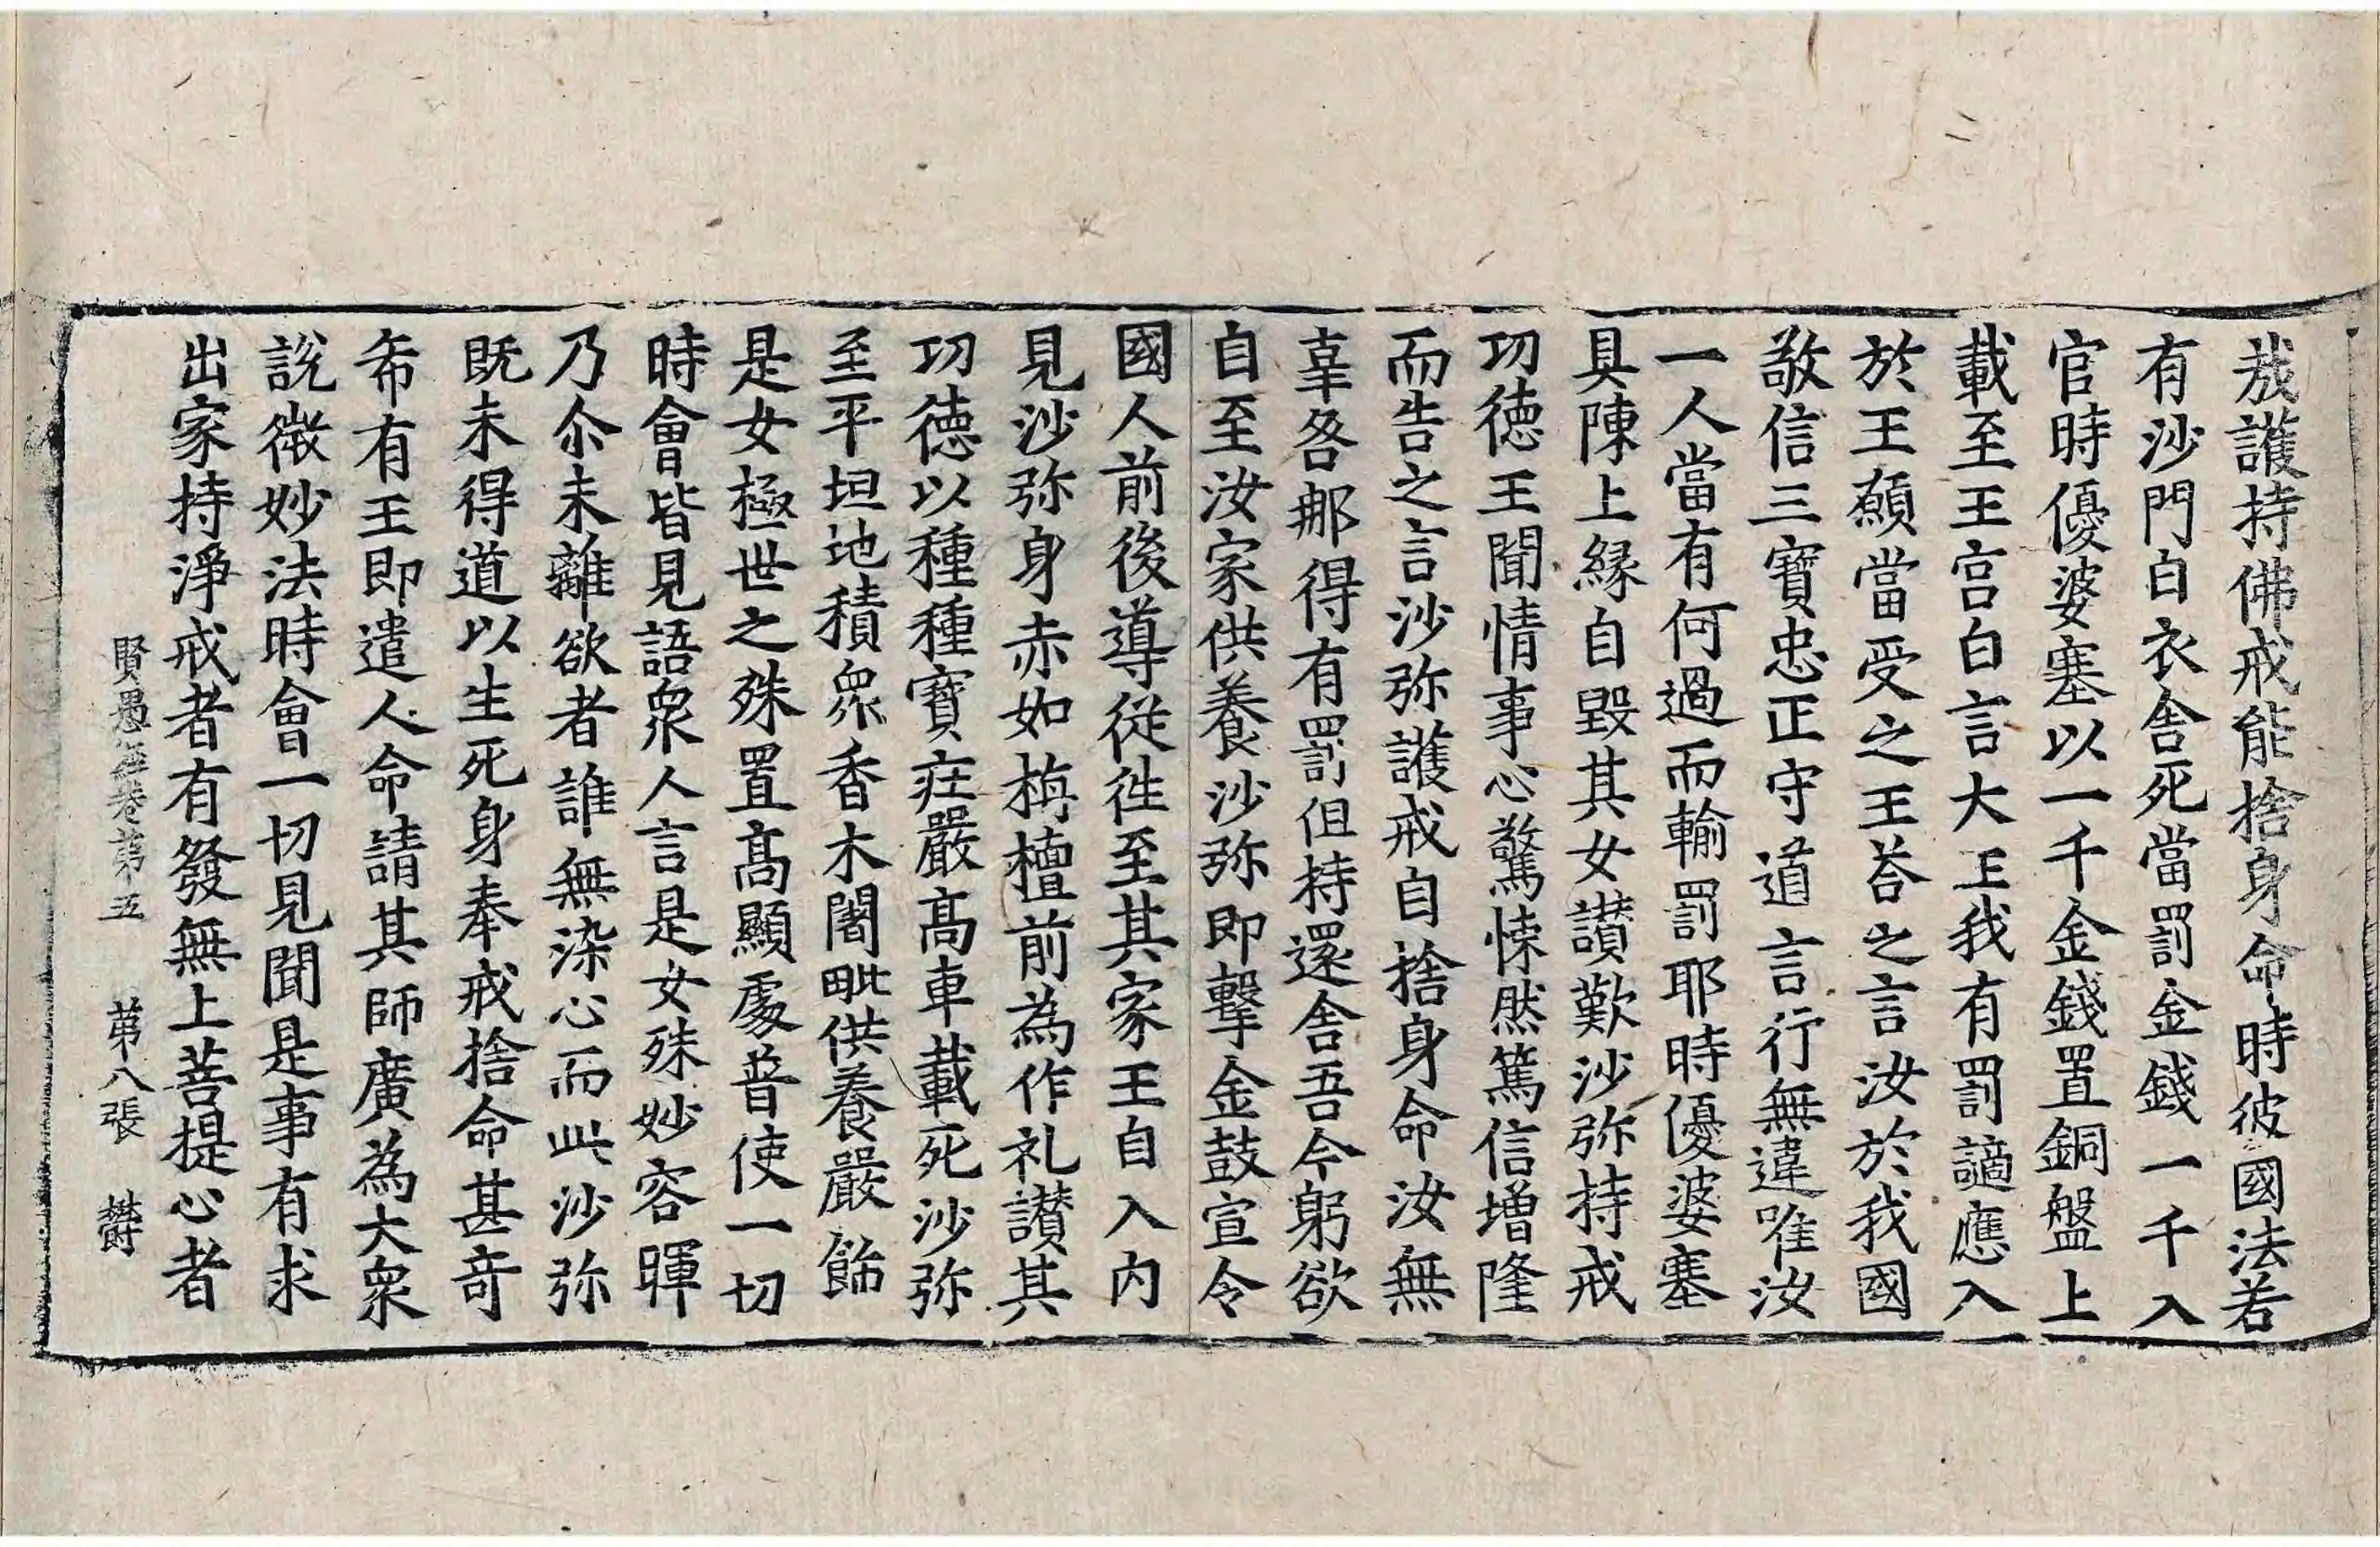 㢤護持佛戒能捨身命時彼國法若
有沙門白衣舍死當罰金錢一千入
官時優婆塞以一千金錢置銅盤上
載至王宫白言大王我有罰謫應入
於王願當受之王荅之言汝於我國
敬信三寶忠正守道言行無違唯汝
一人當有何過而輸罰耶時優婆塞
具陳上縁自毀其女讃歎沙弥持戒
切徳王聞情事心驚悚然篤信增隆
而告之言沙弥護戒自捨身命汝無
辜咎那得有罰但持還舍吾今躬欲
自至汝家供養沙弥即擊金鼓宣令
國人前後導從徃至其家王自入内
見沙弥身赤如栴檀前為作礼讃其
切徳以種種寶莊嚴髙車載死沙弥
至平坦地積衆香木闍毗供養嚴餝
是女極世之殊置髙顯處普使一切
時會皆見語衆人言是女殊妙容暉
乃尒未離欲者誰無染心而此沙弥
既未得道以生死身奉戒捨命甚竒
希有王即遣人命請其師廣為大衆
說微妙法時會一切見聞是事有求
出家持淨戒者有發無上菩提心者
賢愚経卷第五 第八張 欝